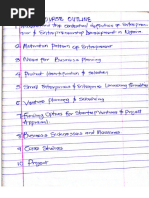 COURSE OUTLINE
1) Introduction and contextual definition of Entrepren-
eur & Entrepreneurship Development in Nigeria
2) Motivation Pattern of Entrepreneur
3) Need for Business Planning
4) Product Identification & Selection
5) Small Enterprises & Enterprise Launching Formalities
6) Venture Planning & Scheduling
7) Funding Options for Startup Ventures & Project
Appraisal
8) Business Sicknesses and Remedies
9) Case Studies
10) Project